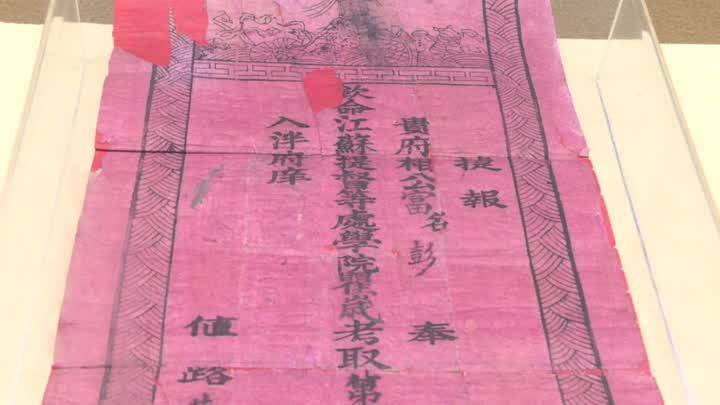 捷報
貴府相公富名彭 奉
欽命江蘇提督等處學院瞿歲考取第
入泮府庠
值路